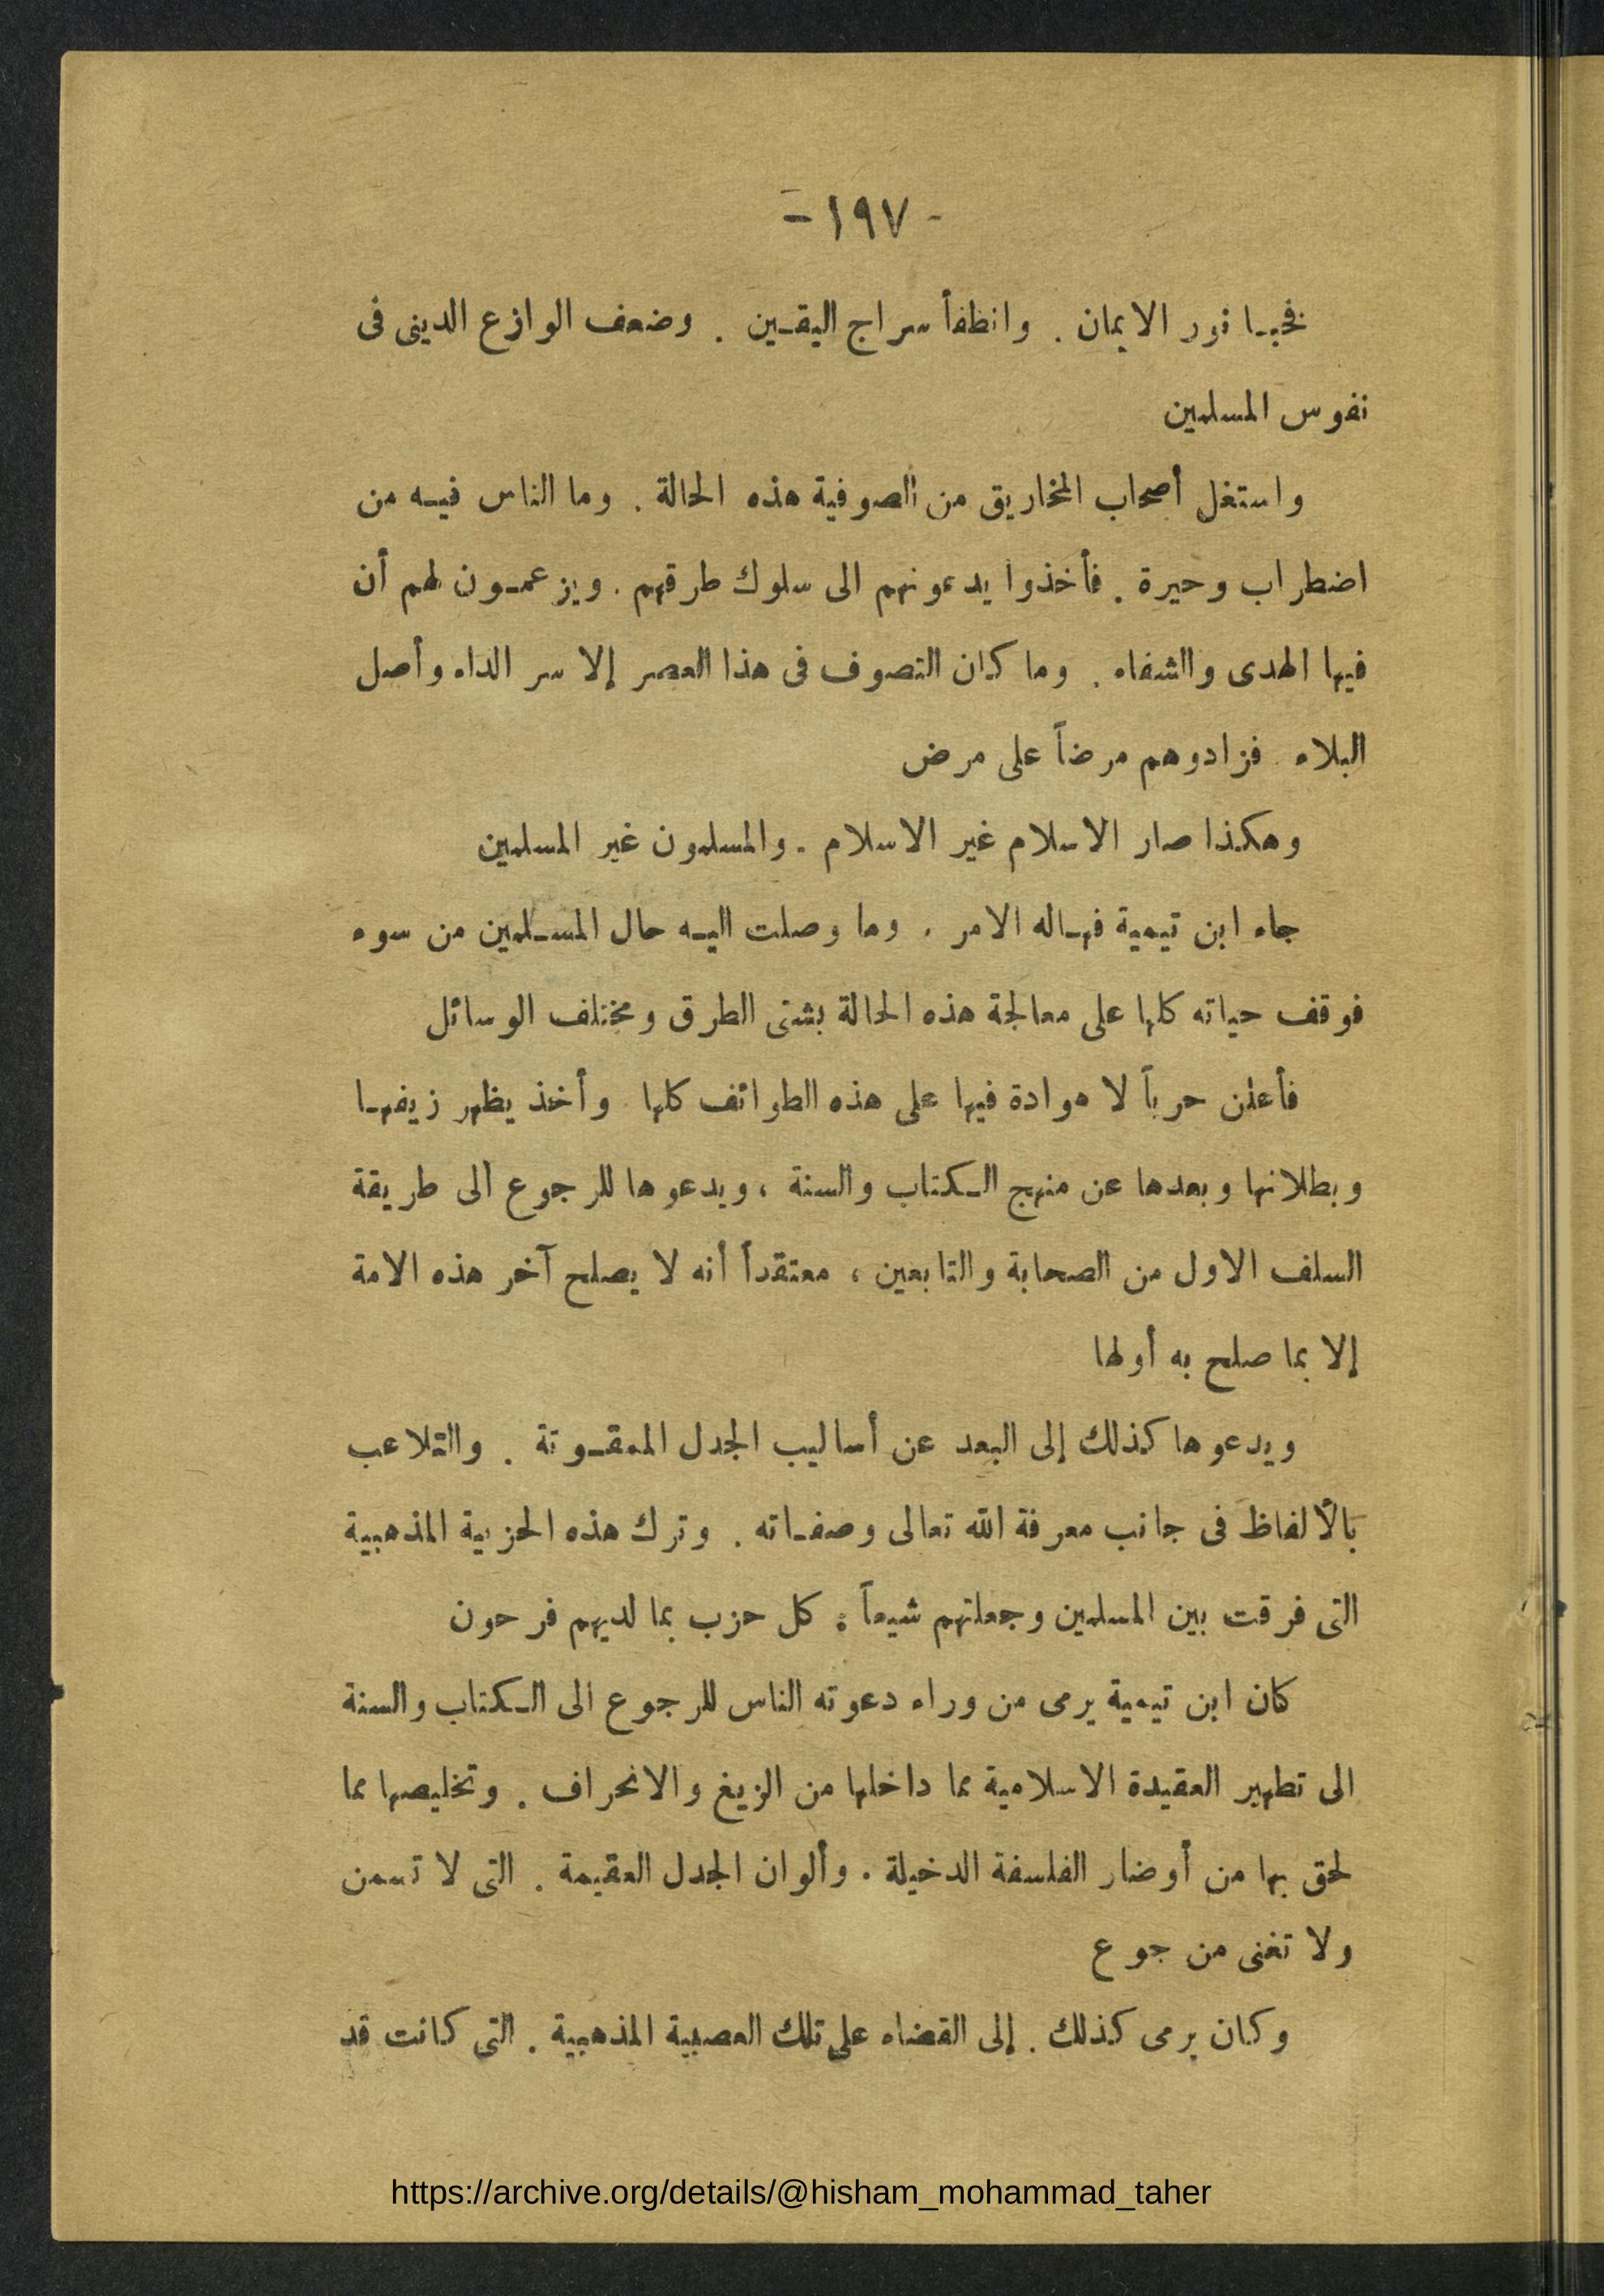 - ١٩٧ -
فخبا نور الايمان . وانطفأ سراج اليقين . وضعف الوازع الدينى فى
نفوس المسلمين
واستغل أصحاب المخاريق من الصوفية هذه الحالة . وما الناس فيه من
اضطراب وحيرة . فأخذوا يدعونهم الى سلوك طرقهم . ويزعمون لهم أن
فيها الهدى والشفاء . وما كان التصوف فى هذا العصر إلا سر الداء وأصل
البلاء . فزادوهم مرضاً على مرض
وهكذا صار الاسلام غير الاسلام . والمسلمون غير المسلمين
جاء ابن تيمية فهاله الامر . وما وصلت اليه حال المسلمين من سوء
فوقف حياته كلها على معالجة هذه الحالة بشتى الطرق ومختلف الوسائل
فأعلن حرباً لا هوادة فيها على هذه الطوائف كلها . وأخذ يظهر زيفها
وبطلانها وبعدها عن منهج الكتاب والسنة ، ويدعوها للرجوع الى طريقة
السلف الاول من الصحابة والتابعين ، معتقداً أنه لا يصلح آخر هذه الامة
إلا بما صلح به أولها
ويدعوها كذلك إلى البعد عن أساليب الجدل الممقوتة . والتلاعب
بالألفاظ فى جانب معرفة الله تعالى وصفاته . وترك هذه الحزبية المذهبية
التى فرقت بين المسلمين وجعلتهم شيعاً . كل حزب بما لديهم فرحون
كان ابن تيمية يرمى من وراء دعوته الناس للرجوع الى الكتاب والسنة
الى تطهير العقيدة الاسلامية مما داخلها من الزيغ والانحراف . وتخليصها مما
لحق بها من أوضار الفلسفة الدخيلة . وألوان الجدل العقيمة . التى لا تسمن
ولا تغنى من جوع
وكان يرمى كذلك . إلى القضاء على تلك العصبية المذهبية . التى كانت قد
https://archive.org/details/@hisham_mohammad_taher